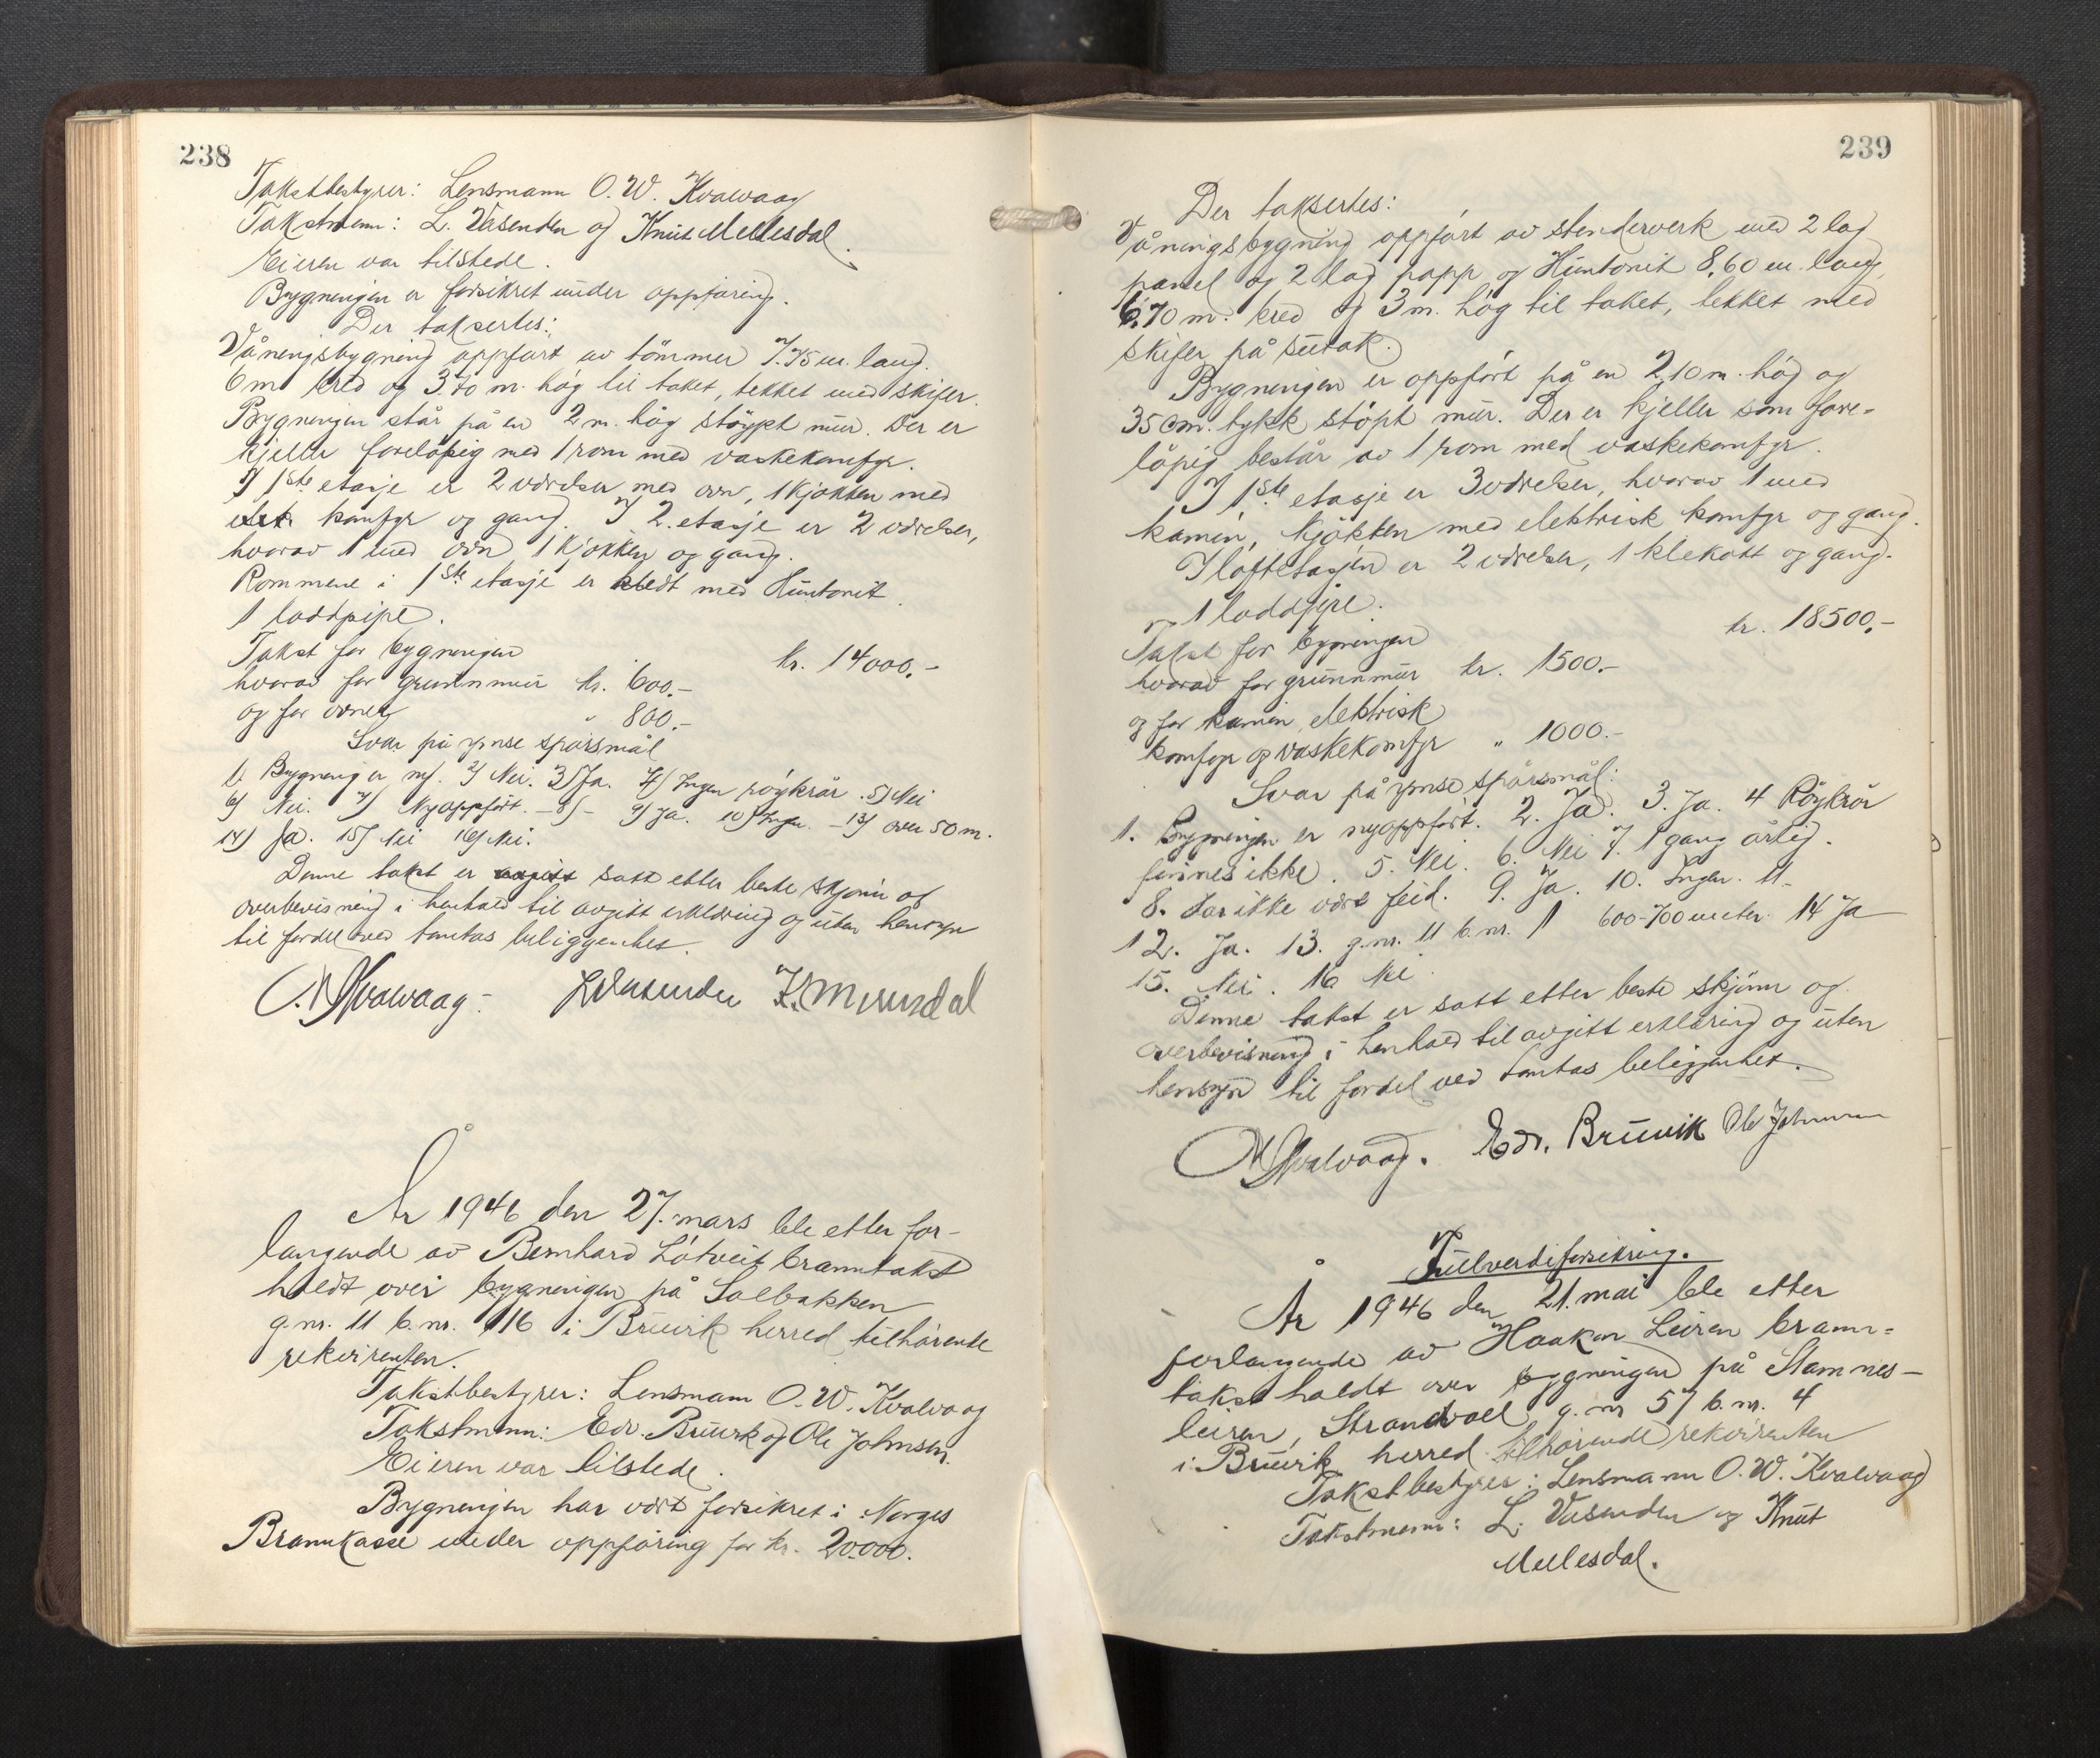 238
Takstbestyrer: Lensmann O. W. Kvalvaag
Takstmenn: L. Vasenden og Knut Mellesdal.
Eieren var tilstede.
Bygningen er forsikret under oppføring.
Der taksertes:
Våningsbygning oppført av tømmer 7.75 m. lang.
6 m bred og 3.70 m. høg til taket, tekket med skifer.
Bygningen står på en 2 m. høg støypt mur. Der er
kjeller foreløpig med 1 rom med vaskekomfyr.
I 1ste etasje er 2 værelser med ovn, 1 kjøkken med
komfyr og gang. I 2. etasje er 2 værelser,
hvorav 1 med ovn 1 kjøkken og gang.
Rommene i 1ste etasje er kledt med Huntonit.
1 loddpipe.
Takst for bygningen kr. 14000.-
hvorav for grunnmur kr. 600.-
og for ovner " 800.-
Svar på ymse spørsmål
1. Bygning er ny. 2) Nei. 3) Ja. 4) Ingen røykrør. 5) Nei
6) Nei. 7) Nyoppført. - 8) - 9) Ja. 10) Ingen. - 13) over 50 m.
14) Ja. 15) Nei 16) Nei.
Denne takst er satt etter beste skjønn og
overbevisning i henhold til avgitt erklæring og uten hensyn
til fordel ved tomtas beliggenhet.
O. W. Kvalvaag - L. Vasenden K. Mellesdal
År 1946 den 27. mars ble etter for-
langende av Bernhard Løtveit branntakst
holdt over bygningen på Solbakken
g.nr. 11 b.nr. 116 i Bruvik herred tilhørende
rekvirenten.
Takstbestyrer: Lensmann O. W. Kvalvaag
Takstmenn: Edv. Bruvik og Ole Johnsen.
Eieren var tilstede.
Bygningen har vært forsikret i Norges
Brannkasse under oppføring for kr. 20.000.
239
Der taksertes:
Våningsbygning oppført av stenderverk med 2 lag
panel og 2 lag papp og Huntonit 8,60 m. lang,
6.70 m. bred og 3 m. høg til taket, tekket med
skifer på sutak.
Bygningen er oppført på en 2.10 m. høg og
35 cm. tykk støpt mur. Der er kjeller som fore-
løpig består av 1 rom med vaskekomfyr.
I 1ste etasje er 3 værelser, hvorav 1 med
kamin, kjøkken med elektrisk komfyr og gang.
I loftetasjen er 2 værelser, 1 klekott og gang.
1 loddpipe.
Takst for bygningen kr. 18500.-
hvorav for grunnmur kr. 1500.-
og for kamin, elektrisk
komfyr og vaskekomfyr " 1000.-
Svar på ymse spørsmål:
1. Bygningen er nyoppført. 2. Ja. 3. Ja. 4 Røykrør
finnes ikke. 5. Nei. 6. Nei 7. 1 gang årlig.
8. Har ikke vært feid. 9. Ja. 10. Ingen. 11-
12. Ja. 13. g.nr. 11 b.nr. 1 600-700 meter. 14 Ja
15. Nei. 16 Nei.
Denne takst er satt etter beste skjønn og
overbevisning i henhold til avgitt erklæring og uten
hensyn til fordel ved tomtas beliggenhet.
O. W. Kvalvaag. Edv. Bruvik Ole Johnsen
Fullverdiforsikring.
År 1946 den 21. mai ble etter
forlangende av Haakon Leiren brann-
takst holdt over bygningen på Stamnes-
leiren, Strandvoll g.nr 57 b.nr. 4
i Bruvik herred tilhørende rekvirenten
Takstbestyrer: Lensmann O. W. Kvalvaag
Takstmenn: L. Vasenden og Knut
Mellesdal.